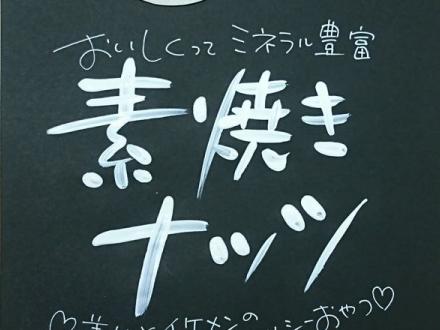 おいしくって ミネラル豊富
素焼き
ナッツ
♡美女とイケメンの ヘルシーおやつ♡